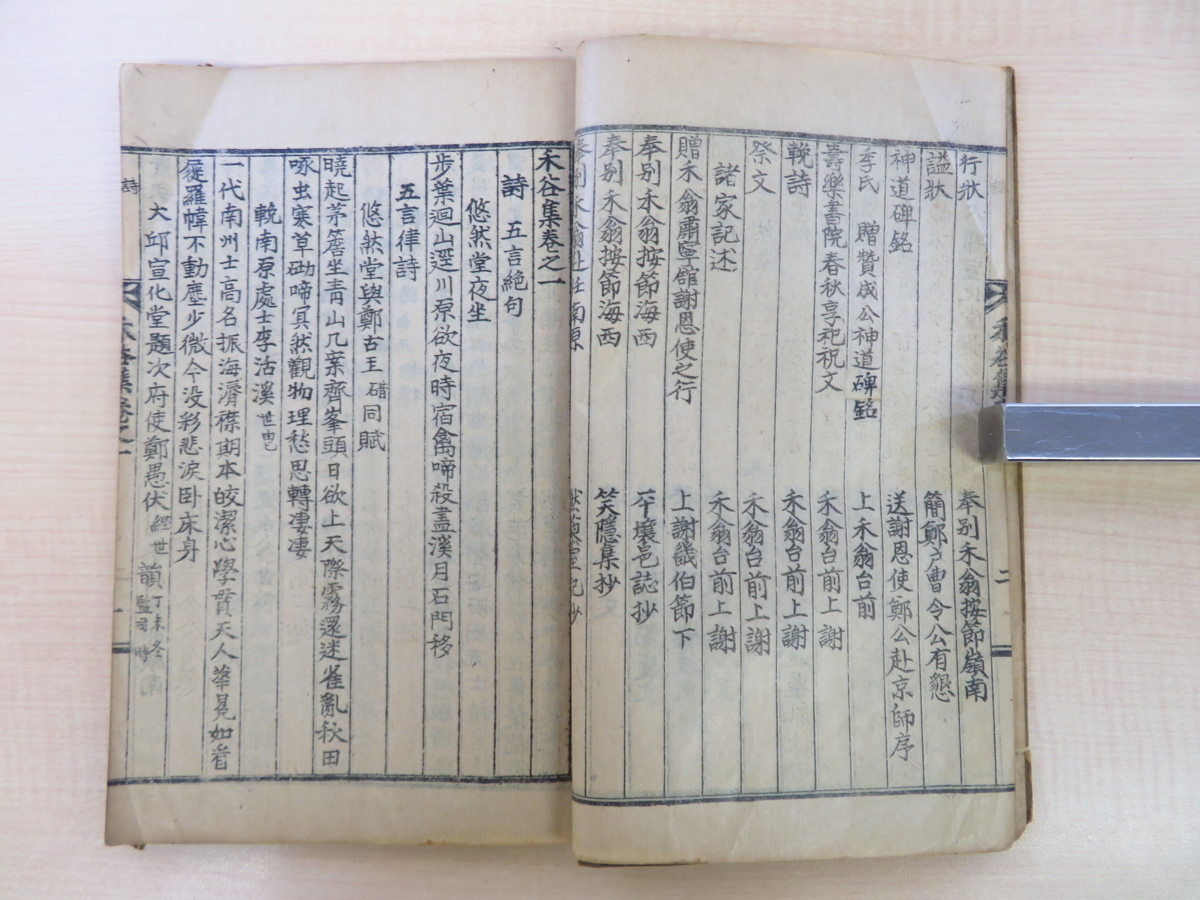 行狀
奉别禾翁按節嶺南
諡狀
簡鄭
曹令公有懇
神道碑銘
送謝恩使鄭公赴京師序
李氏 贈贊成公神道碑銘
上禾翁台前
壽樂書院春秋享祀祝文
禾翁台前上謝
輓詩
禾翁台前上謝
祭文
禾翁台前上謝
諸家記述
禾翁台前上謝
贈禾翁肅寧舘謝恩使之行
上謝畿伯節下
奉别禾翁按節海西
平壤邑誌抄
奉别禾翁按節海西
笑隱集抄
禾谷集卷之一
詩 五言絶句
悠然堂夜坐
步葉迴山逕川原欲夜時宿禽啼殺盡溪月石門移
五言律詩
悠然堂與鄭古玉碏同賦
曉起茅簷坐靑山几案齊峯頭日欲上天際霧還迷雀亂秋田
啄虫寒草砌啼冥然觀物理愁思轉凄凄
輓南原處士李活溪
一代南州士高名振海濟襟期本皎潔心學貫天人華
如昔
羅幃不動塵少微今没彩悲淚卧床身
大邱宣化堂題次府使鄭愚伏經世韻丁未冬監司時
詩
禾谷集卷之一
一
禾谷集
二